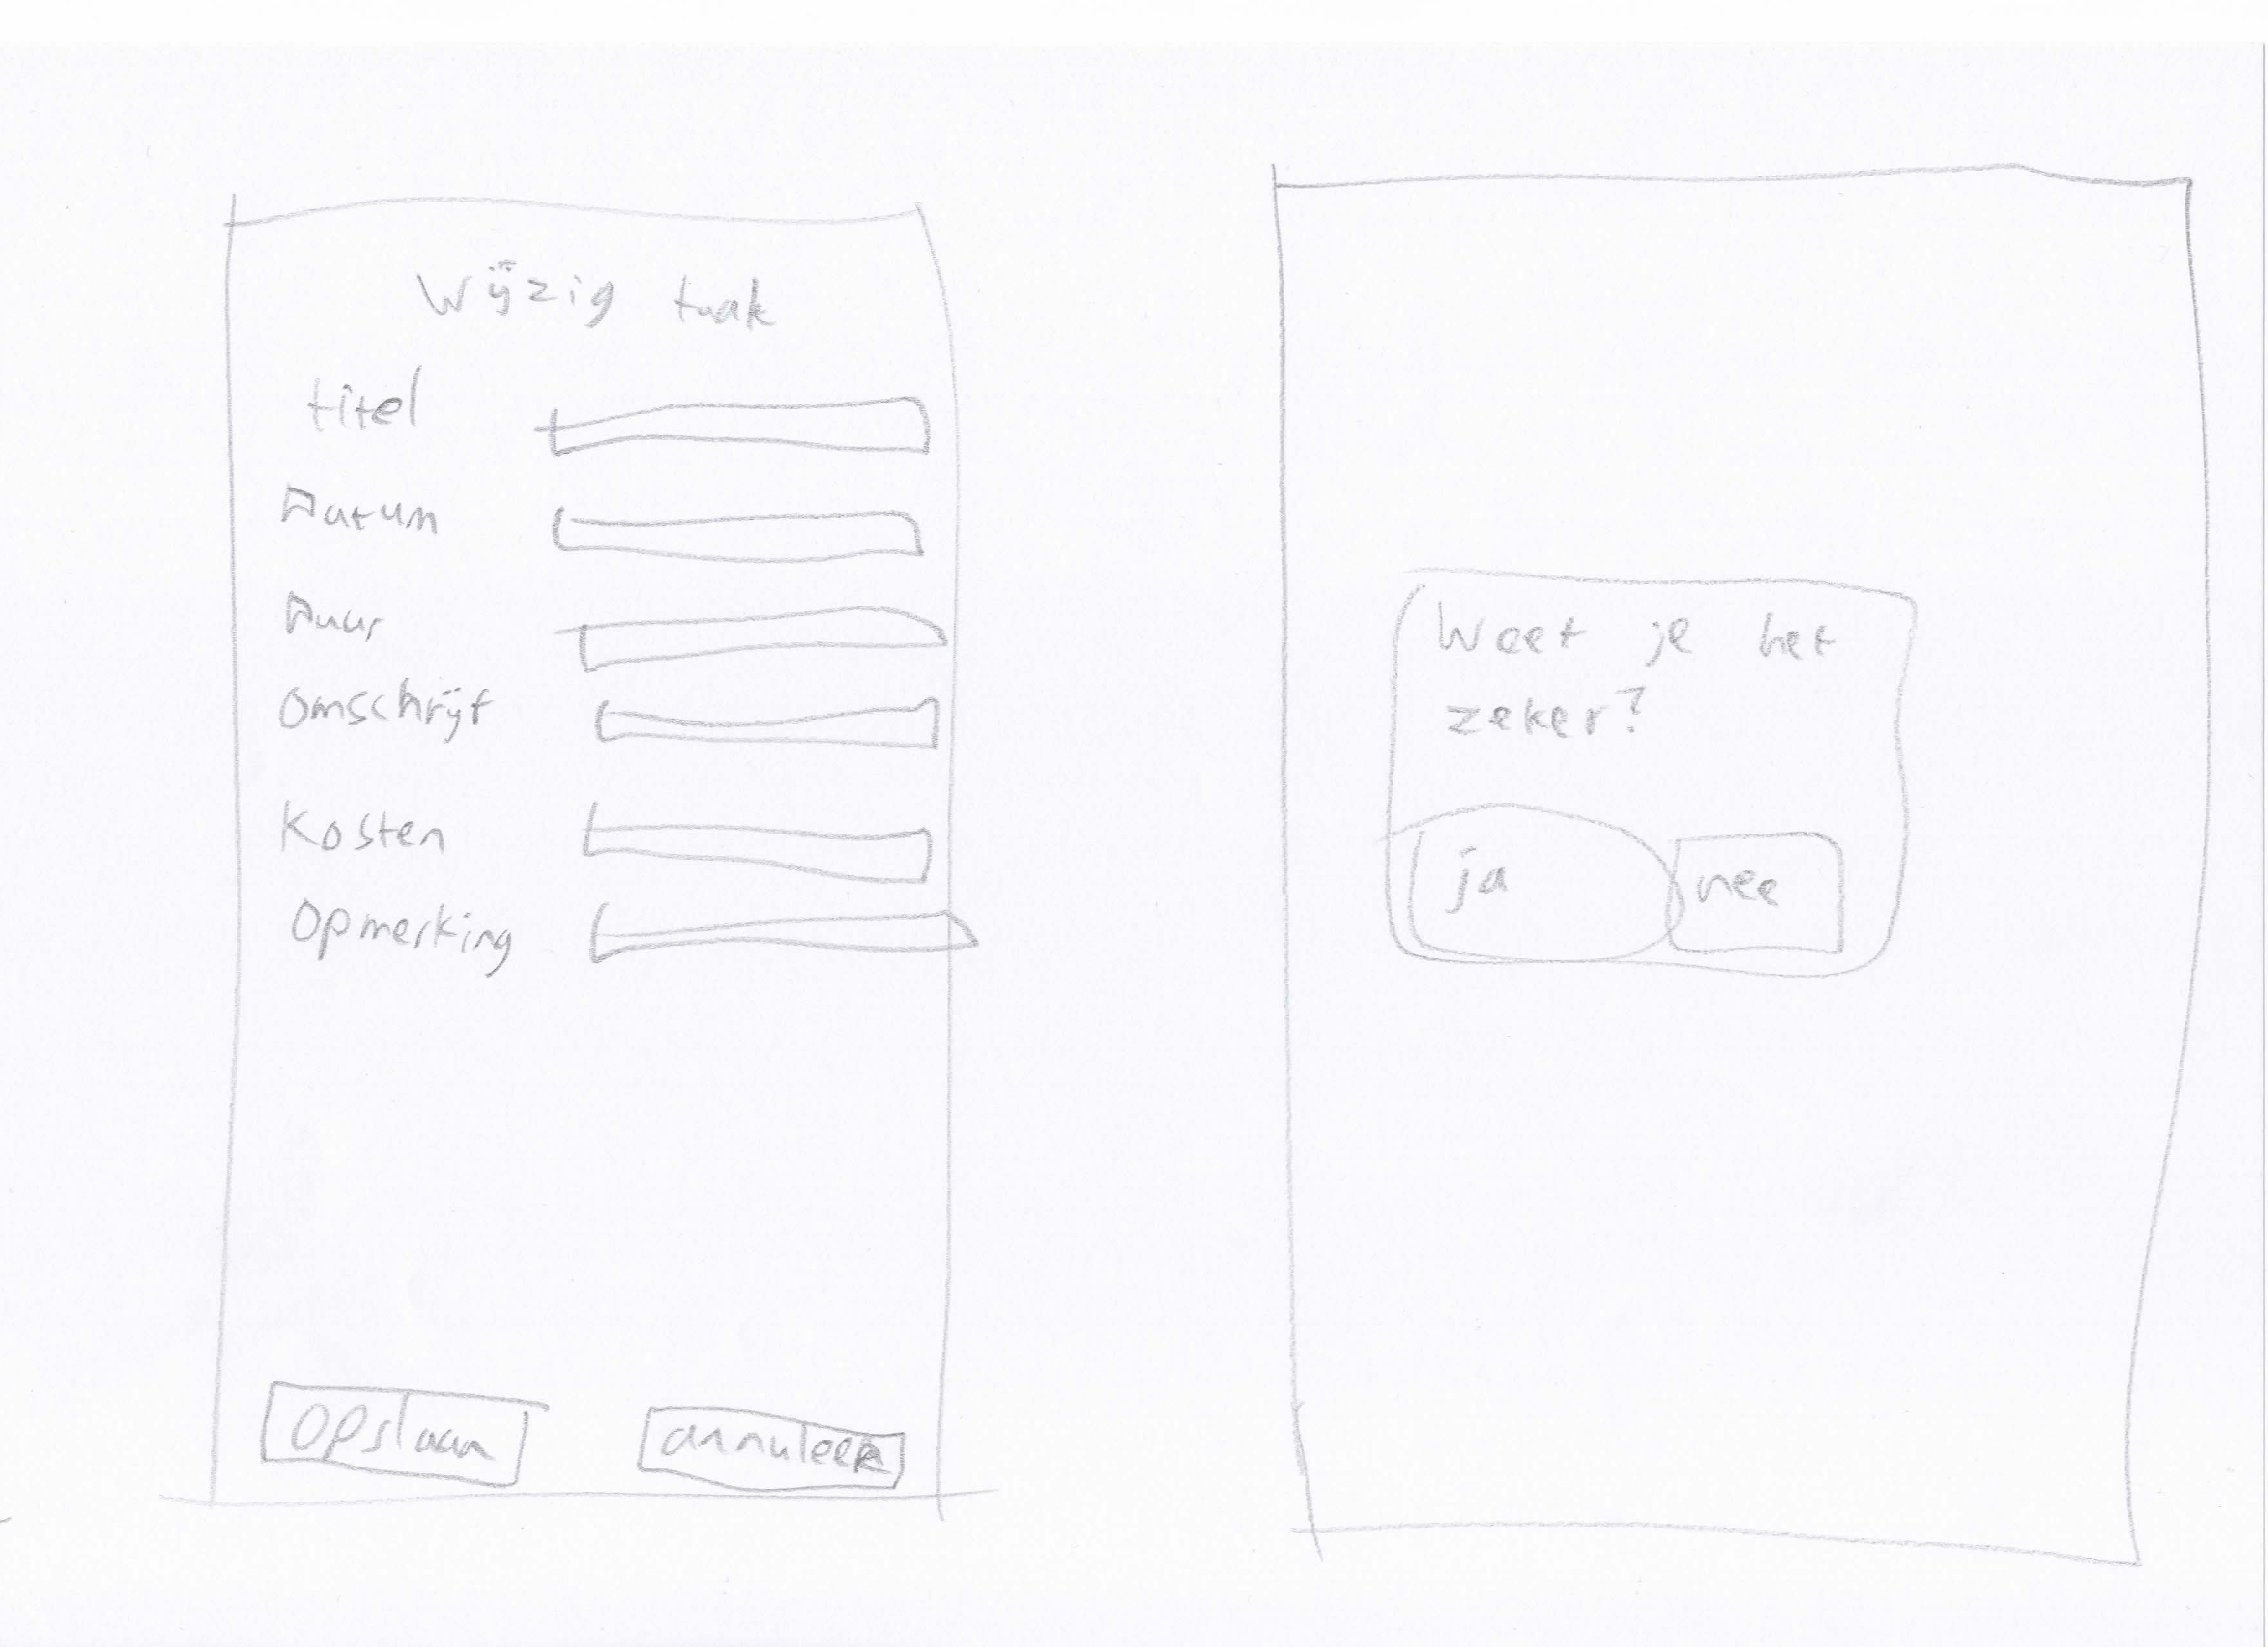 Wijzig taak
titel
Datum
Duur
Omschrijf
Kosten
Opmerking
Opslaan
annuleer
Weet je het
zeker?
ja
nee